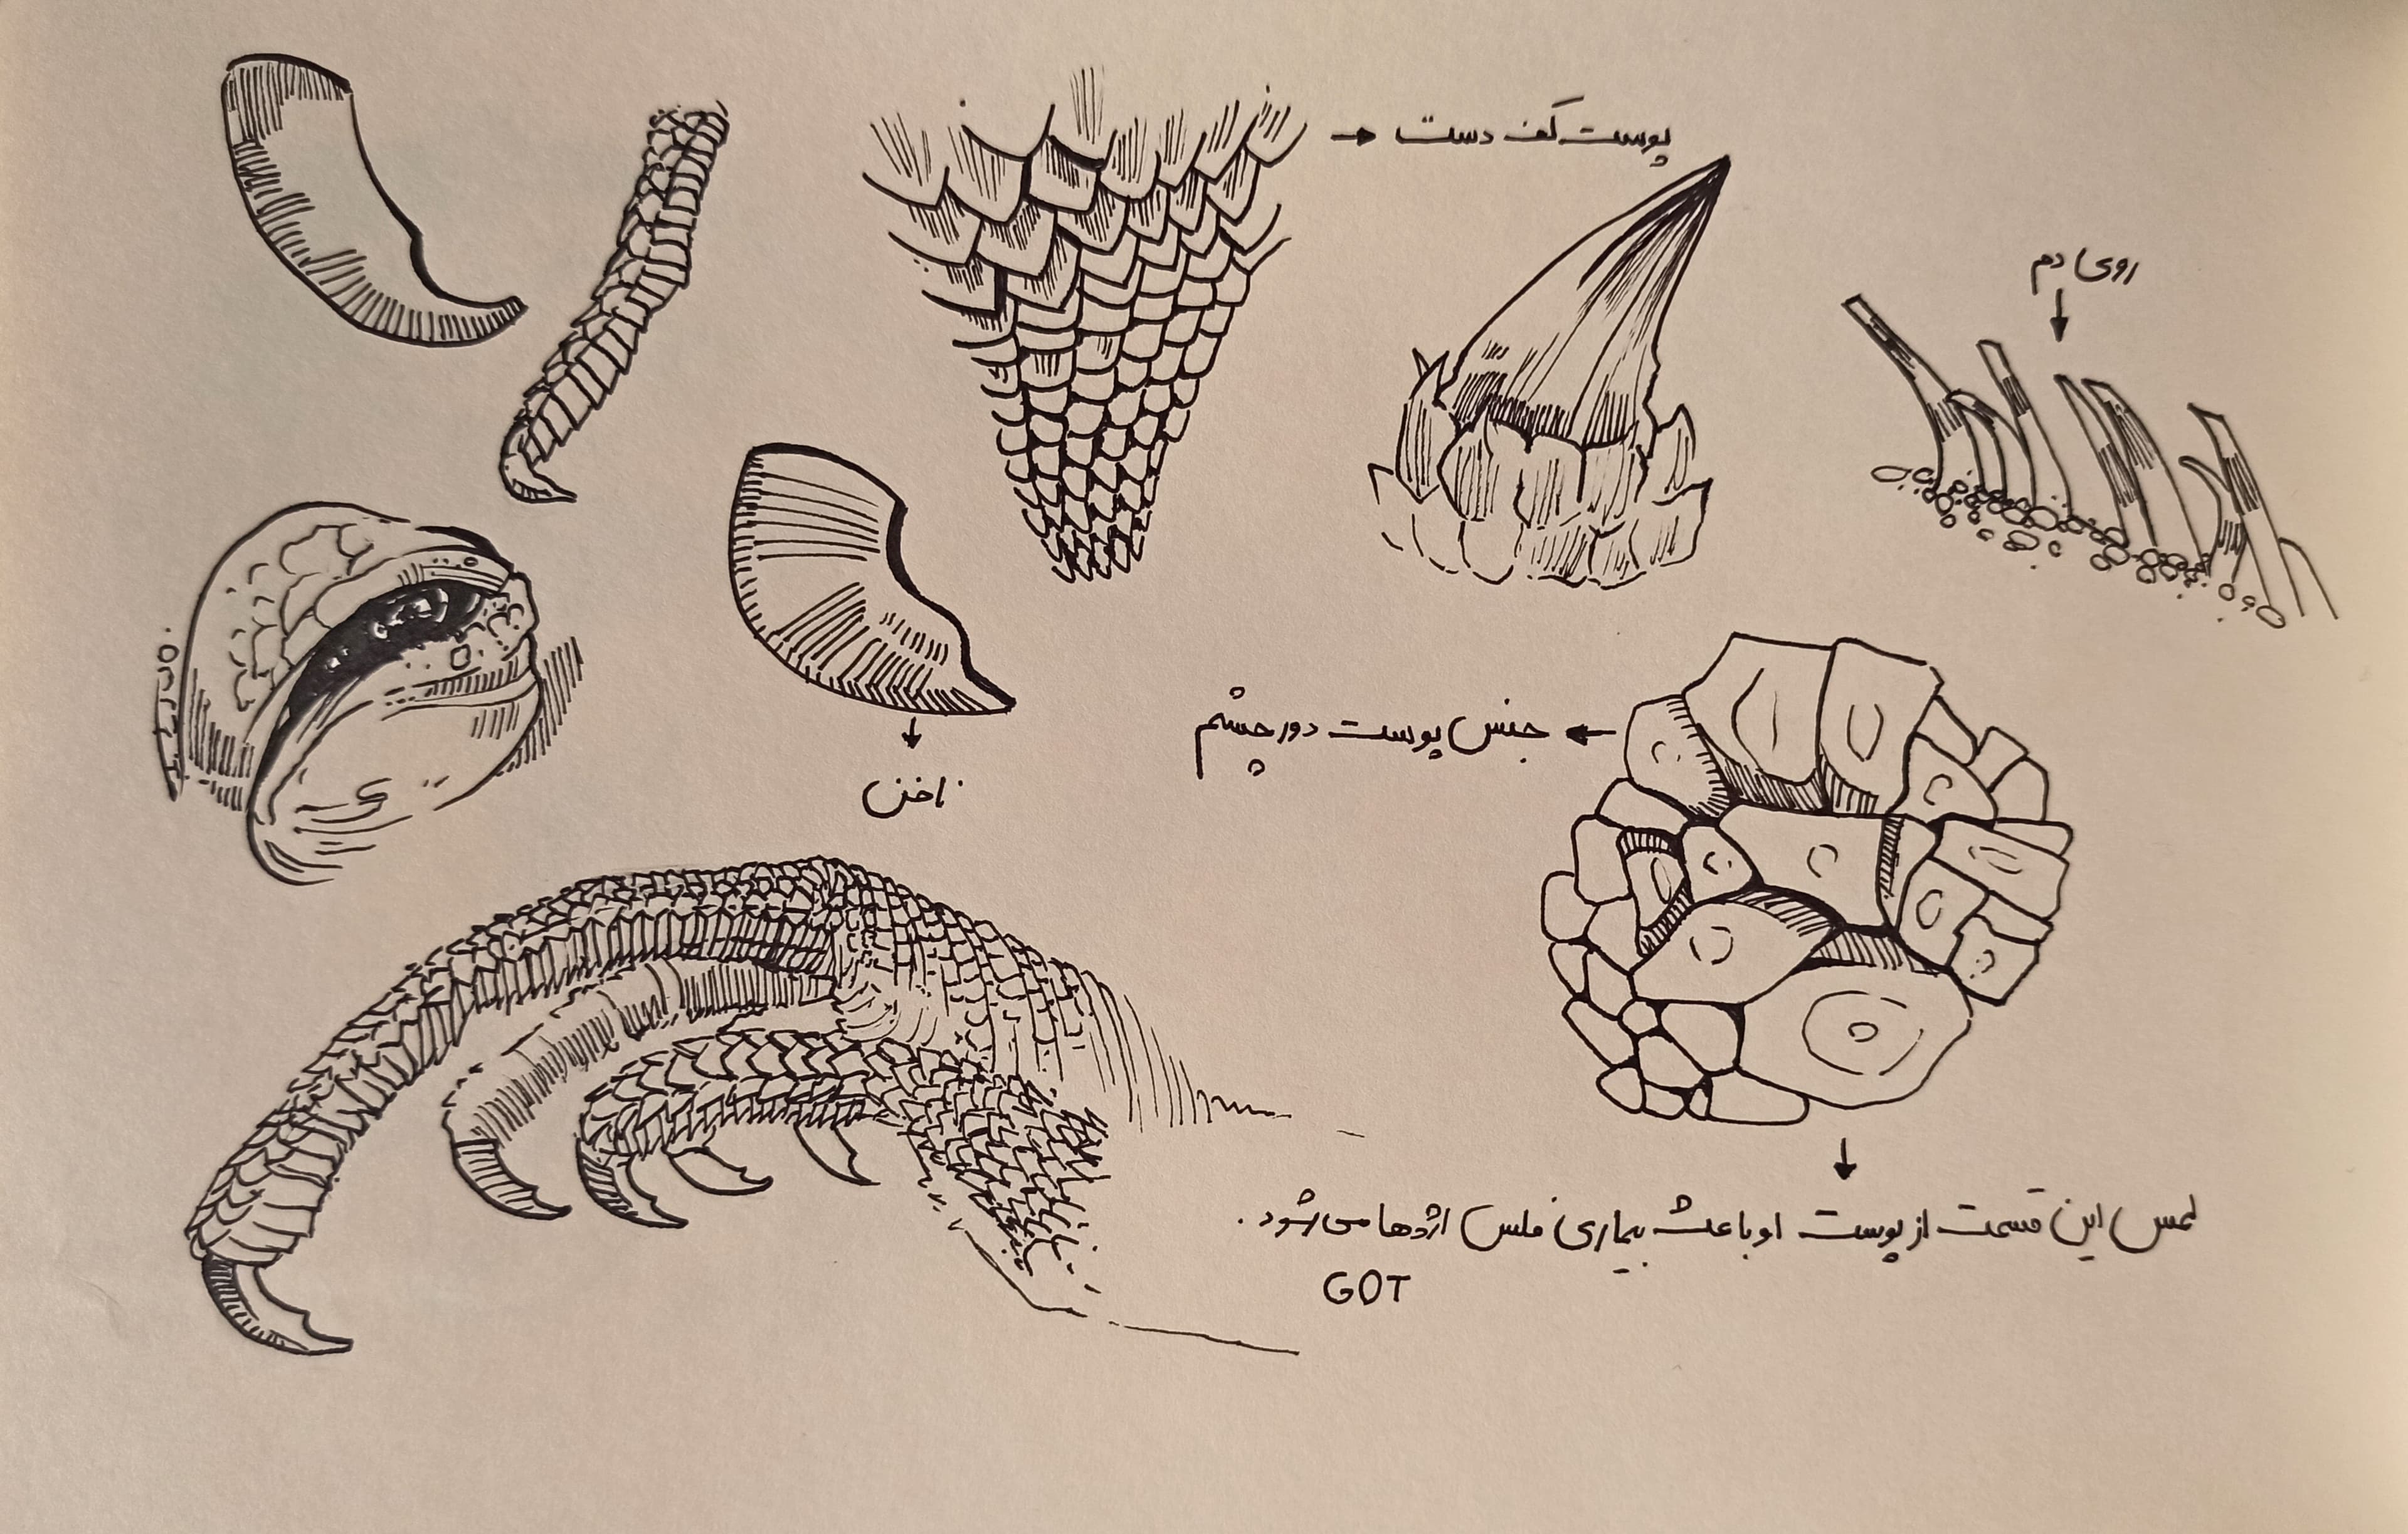 پوست کف دست
روی دم
جنس پوست دور چشم
ناخن
لمس این قسمت از پوست او باعث بیماری فلس اژدها می‌شود.
GOT